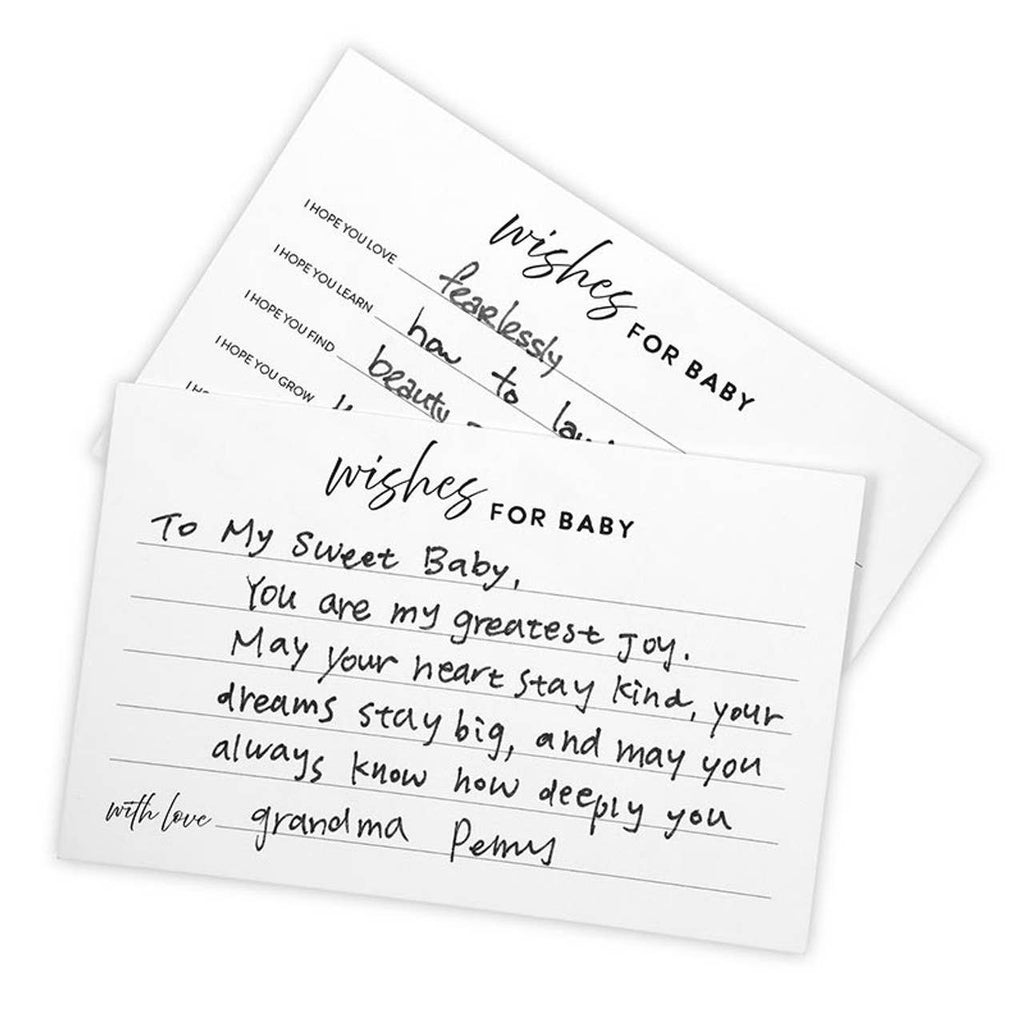 wishes FOR BABY
I HOPE YOU LOVE fearlessly
I HOPE YOU LEARN how to
I HOPE YOU FIND beauty
I HOPE YOU GROW
wishes FOR BABY
To My Sweet Baby,
You are my greatest Joy.
May your heart stay kind, your
dreams stay big, and may you
always know how deeply you
with love grandma